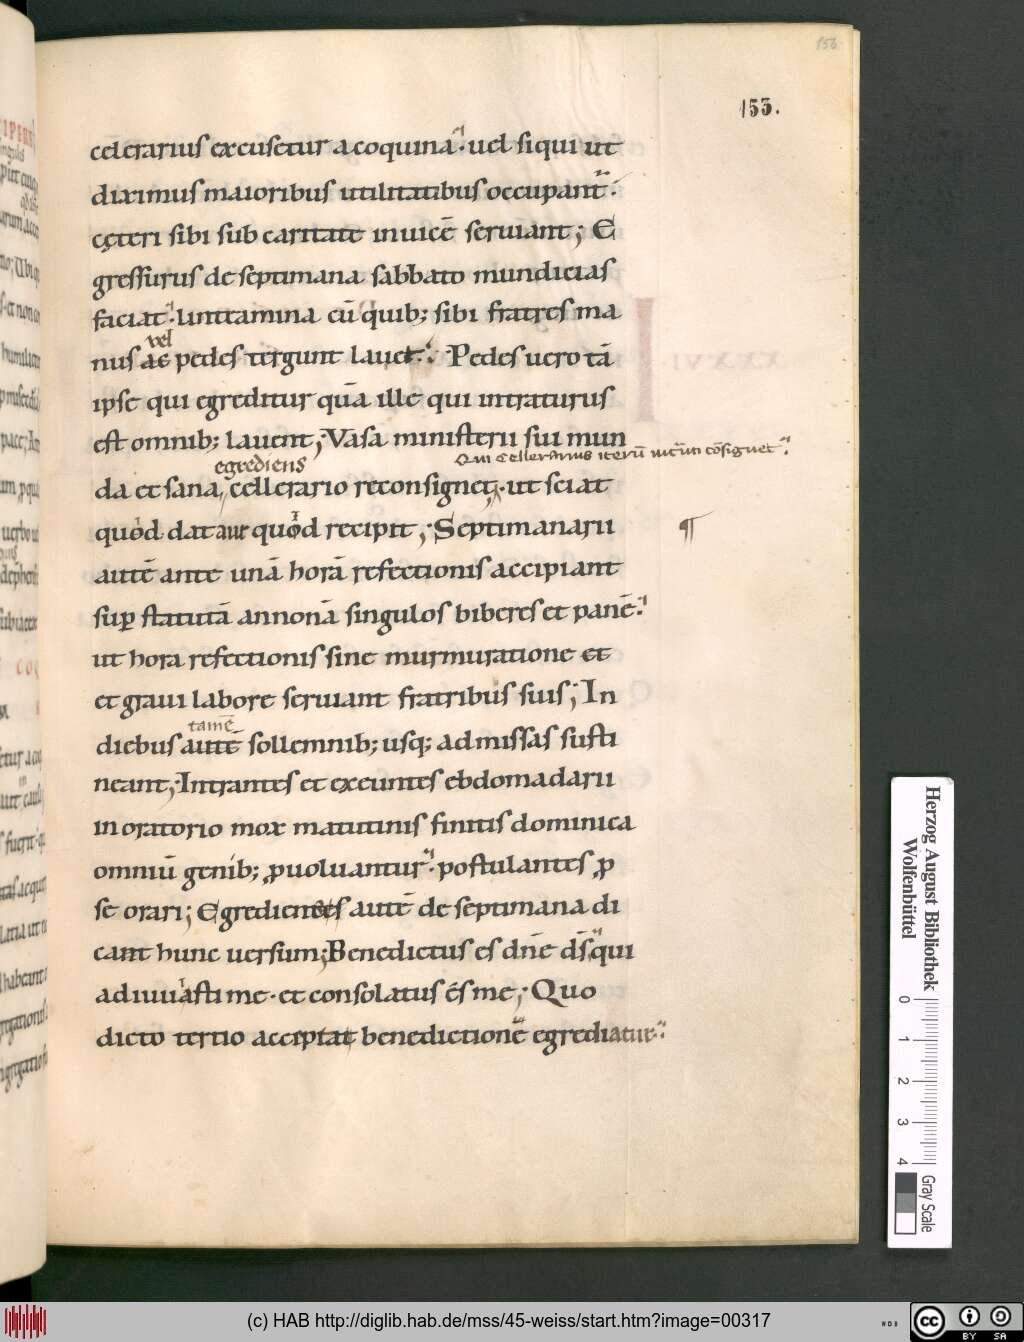 156
153.
celerarius excusetur a coquina. uel siqui ut
diximus maioribus utilitatibus occupant̄.
cęteri sibi sub caritate inuicē seruiant; E
gressurus de septimana sabbato mundicias
faciat. linteamina cū quib; sibi fratres ma
vel
nus ac pedes tergunt lauet. Pedes uero tā
ipse qui egreditur quā ille qui intraturus
est omnib; lauent; Vasa ministerii sui mun
egrediens
Qui Cellerarius iterū
da et sana, cellerario reconsignet, ut sciat
quod dat aut quod recipit; Septimanarii
¶
autē ante unā horā refectionis accipiant
suꝑ statutā annonā singulos biberes et panē.
ut hora refectionis sine murmuratione et
et graui labore seruiant fratribus suis; In
tamē
diebus autē sollemnib; usq; ad missas susti
neant; Intrantes et exeuntes ebdomadarii
in oratorio mox matutinis finitis dominica
omniū genib; ꝓuoluantur. postulantes ꝓ
se orari; Egredientes autē de septimana di
cant hunc uersum; Benedictus es dn̄e ds̄ qui
adiuuasti me. et consolatus es me; Quo
dicto tertio accepta benedictionē egrediatur.
Herzog August Bibliothek
Wolfenbüttel
0 1 2 3 4
Gray Scale
(c) HAB http://diglib.hab.de/mss/45-weiss/start.htm?image=00317
cc BY SA